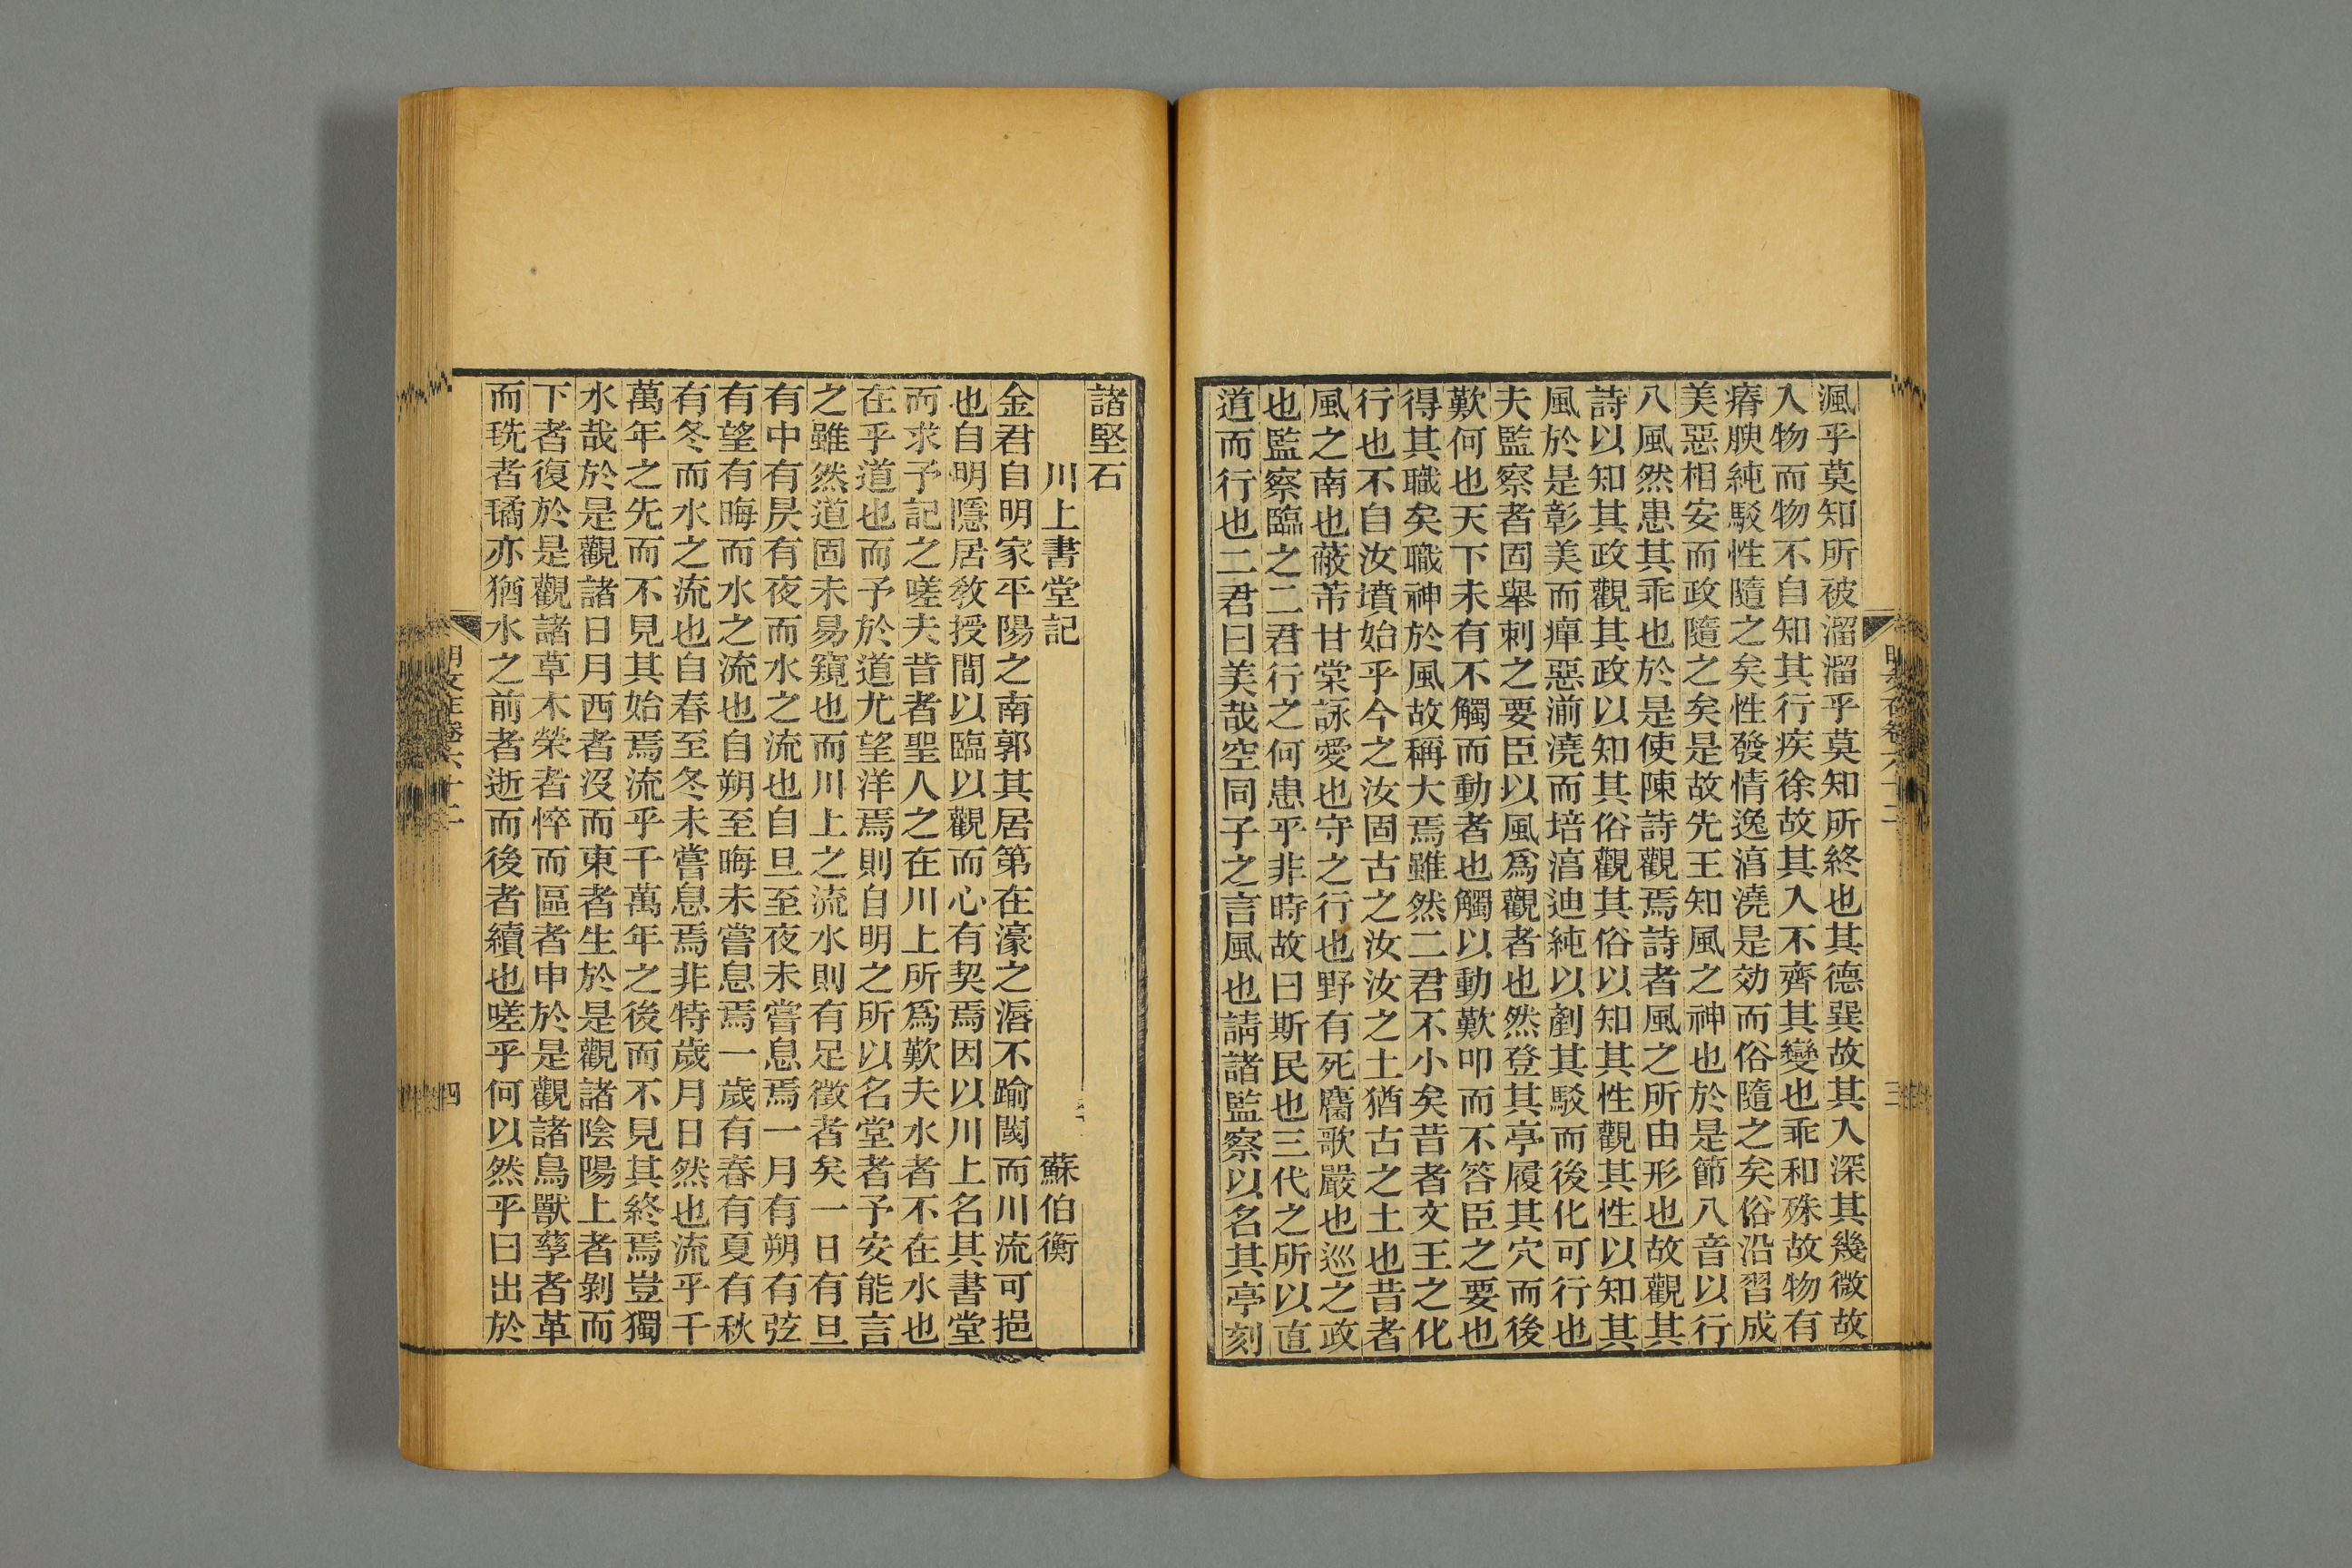 渢乎莫知所被溜溜乎莫知所終也其德巽故其入深其幾微故
入物而物不自知其行疾徐故其入不齊其變也乖和殊故物有
瘠腴純駁性隨之矣性發情逸湻澆是効而俗隨之矣俗沿習成
美惡相安而政隨之矣是故先王知風之神也於是節八音以行
八風然患其乖也於是使陳詩觀焉詩者風之所由形也故觀其
詩以知其政觀其政以知其俗觀其俗以知其性觀其性以知其
風於是彰美而癉惡湔澆而培湻迪純以剷其駁而後化可行也
夫監察者固舉刺之要臣以風爲觀者也然登其亭履其穴而後
歎何也天下未有不觸而動者也觸以動歎叩而不答臣之要也
得其職矣職神於風故稱大焉雖然二君不小矣昔者文王之化
行也不自汝墳始乎今之汝固古之汝汝之土猶古之土也昔者
風之南也蔽芾甘棠詠愛也守之行也野有死麕歌嚴也巡之政
也監察臨之二君行之何患乎非時故曰斯民也三代之所以直
道而行也二君曰美哉空同子之言風也請諸監察以名其亭刻
三
諸堅石
川上書堂記　蘇伯衡
金君自明家平陽之南郭其居第在濠之漘不踰閾而川流可挹
也自明隱居敎授間以臨以觀而心有契焉因以川上名其書堂
而求予記之嗟夫昔者聖人之在川上所爲歎夫水者不在水也
在乎道也而予於道尤望洋焉則自明之所以名堂者予安能言
之雖然道固未易窺也而川上之流水則有足徵者矣一日有旦
有中有昃有夜而水之流也自旦至夜未嘗息焉一月有朔有弦
有望有晦而水之流也自朔至晦未嘗息焉一歲有春有夏有秋
有冬而水之流也自春至冬未嘗息焉非特歲月日然也流乎千
萬年之先而不見其始焉流乎千萬年之後而不見其終焉豈獨
水哉於是觀諸日月西者沒而東者生於是觀諸陰陽上者剝而
下者復於是觀諸草木榮者悴而區者申於是觀諸鳥獸孳者革
而毨者氄亦猶水之前者逝而後者續也嗟乎何以然乎曰出於
四